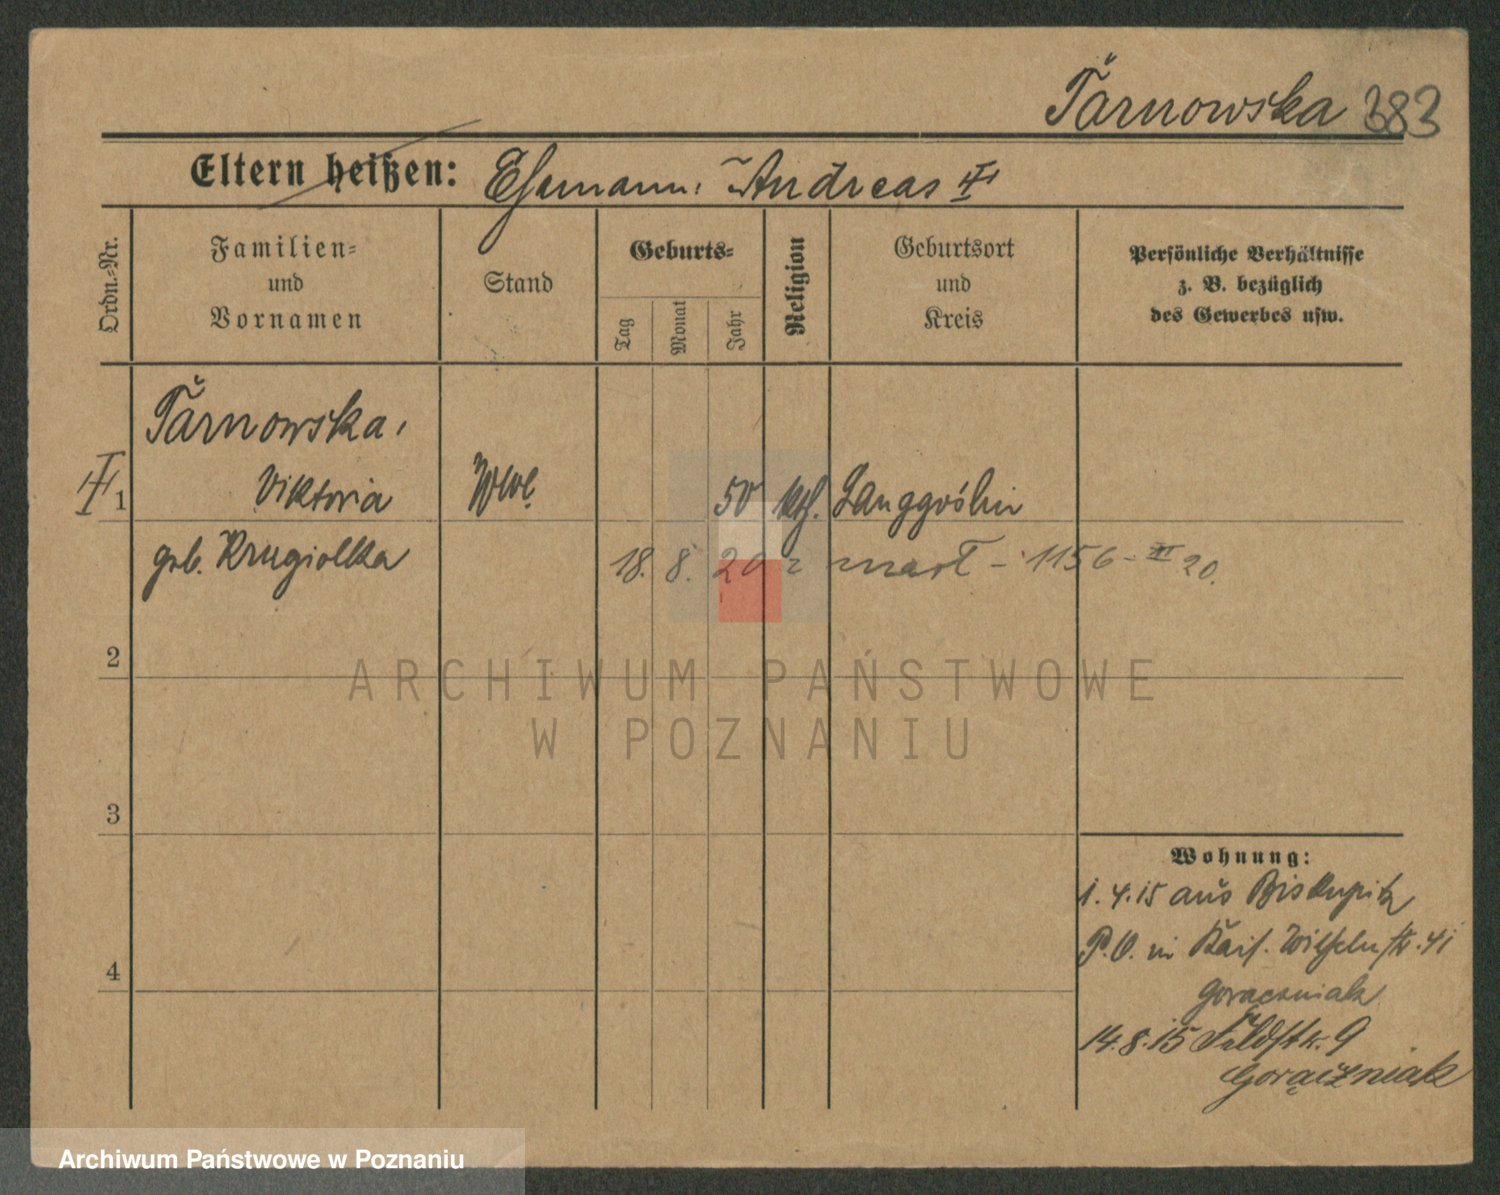 Tarnowska 383
Eltern heißen: Ehemann: Andreas
Ordn.-Nr.
Familien-
und
Vornamen
Stand
Geburts-
Tag
Monat
Jahr
Religion
Geburtsort
und
Kreis
Persönliche Verhältnisse
z. B. bezüglich
des Gewerbes usw.
Tarnowska,
1 Viktoria Wwe. 50 kth. Langgoslin
geb. 18. 8. 20 1156 - III 20.
2
3
4
Wohnung:
1.4.15 aus Biskupitz
P.O. in Kais. Wilhelmstr. 41
Goraczniak
14.8.15 Feldstr. 9
Goraczniak
ARCHIWUM PAŃSTWOWE
W POZNANIU
Archiwum Państwowe w Poznaniu